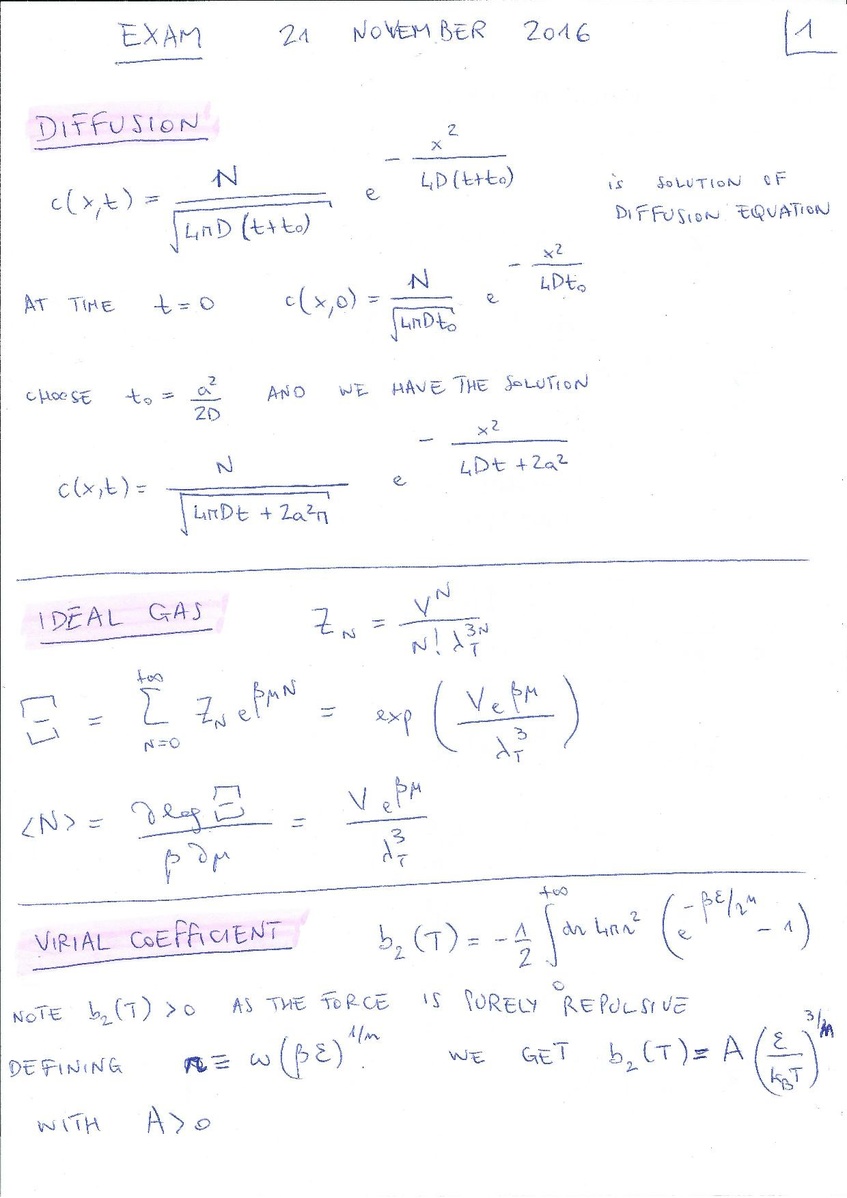 EXAM 21 NOVEMBER 2016 1
DIFFUSION
c(x,t) = N / √(4πD(t+t₀)) e^(-x²/(4D(t+t₀))) is SOLUTION OF
DIFFUSION EQUATION
AT TIME t=0 c(x,0) = N / √(4πDt₀) e^(-x²/(4Dt₀))
CHOOSE t₀ = a²/2D AND WE HAVE THE SOLUTION
c(x,t) = N / √(4πDt + 2a²π) e^(-x²/(4Dt + 2a²))
IDEAL GAS Z_N = V^N / (N! λ_T^(3N))
Ξ = Σ_(N=0)^(+∞) Z_N e^(βμN) = exp(V e^(βμ) / λ_T³)
<N> = ∂log Ξ / (β ∂μ) = V e^(βμ) / λ_T³
VIRIAL COEFFICIENT b₂(T) = -1/2 ∫_0^(+∞) dr 4πr² (e^(-βε/r^n) - 1)
NOTE b₂(T) > 0 AS THE FORCE IS PURELY REPULSIVE
DEFINING r ≡ ω(βε)^(1/n) WE GET b₂(T) = A(ε/k_BT)^(3/n)
WITH A > 0